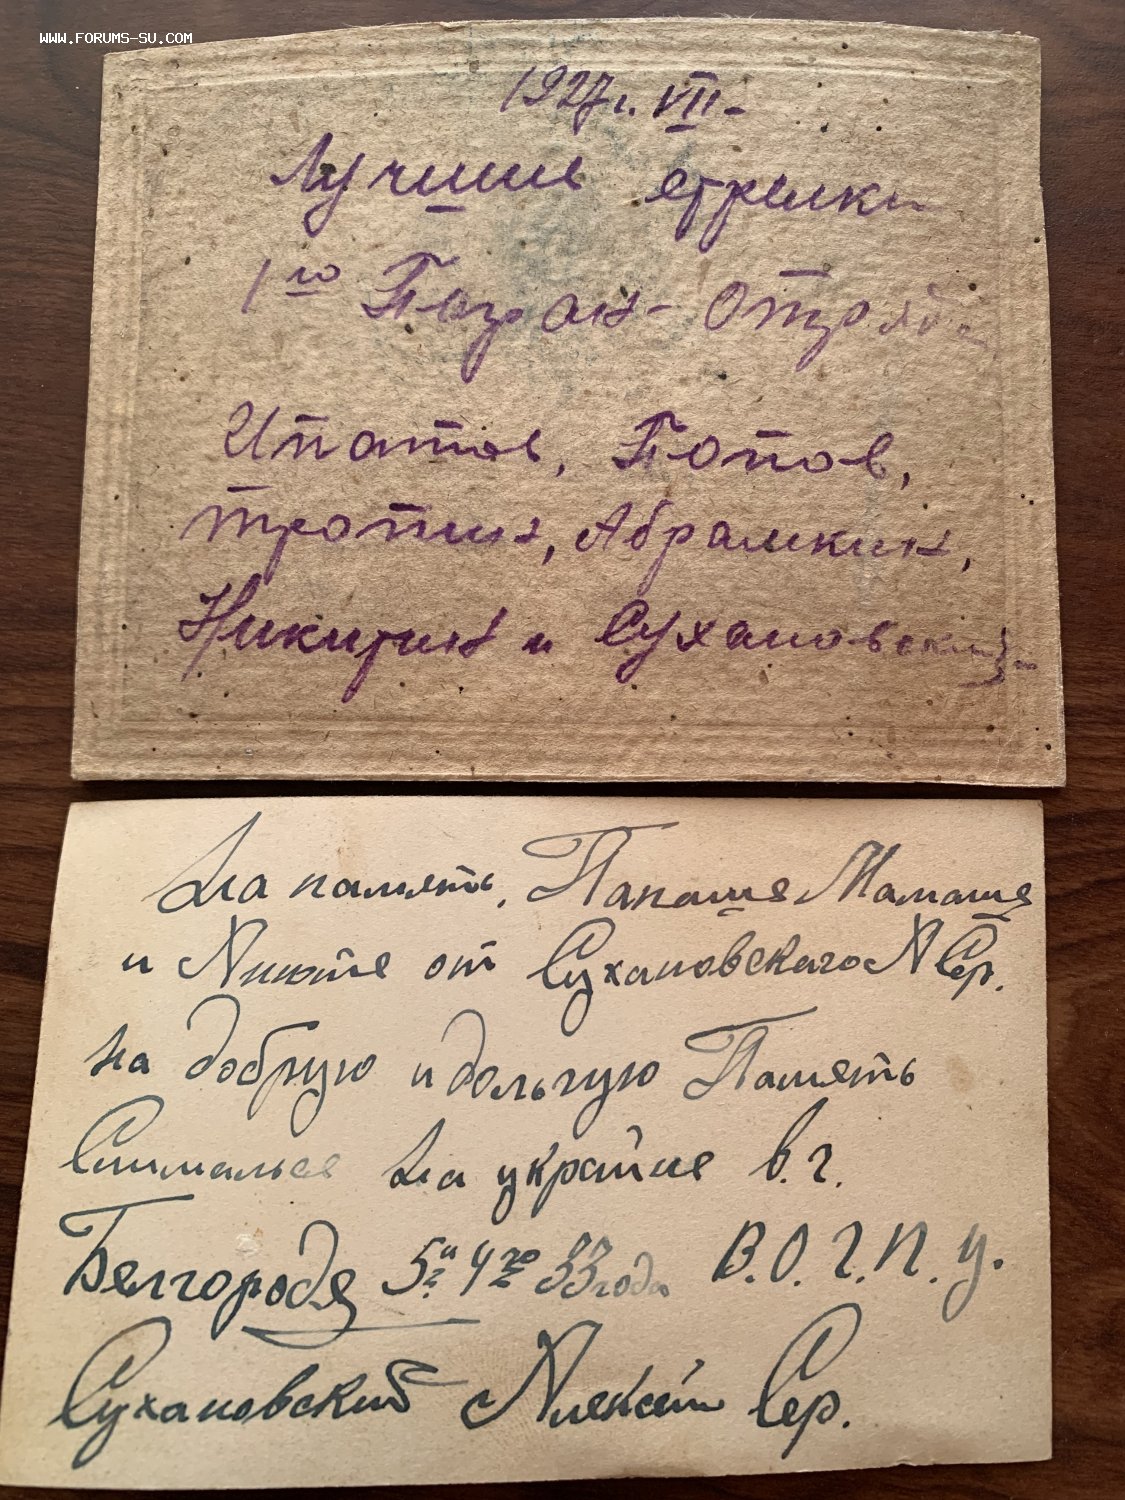 WWW.FORUMS-SU.COM
1927 г. VII-
Лучшие стрелки
1го Погран-отряда
Ипатов, Попов,
Тропин, Абрамкин,
Никитин и Сухановский
На память, Папаше Мамаше
и Анюте от Сухановского А Сер.
На добрую и дольгую Память
Снимался На украйне в. г.
Белгороде 5й 4го 33 года В.О.Г.П.У.
Сухановский Алексей Сер.